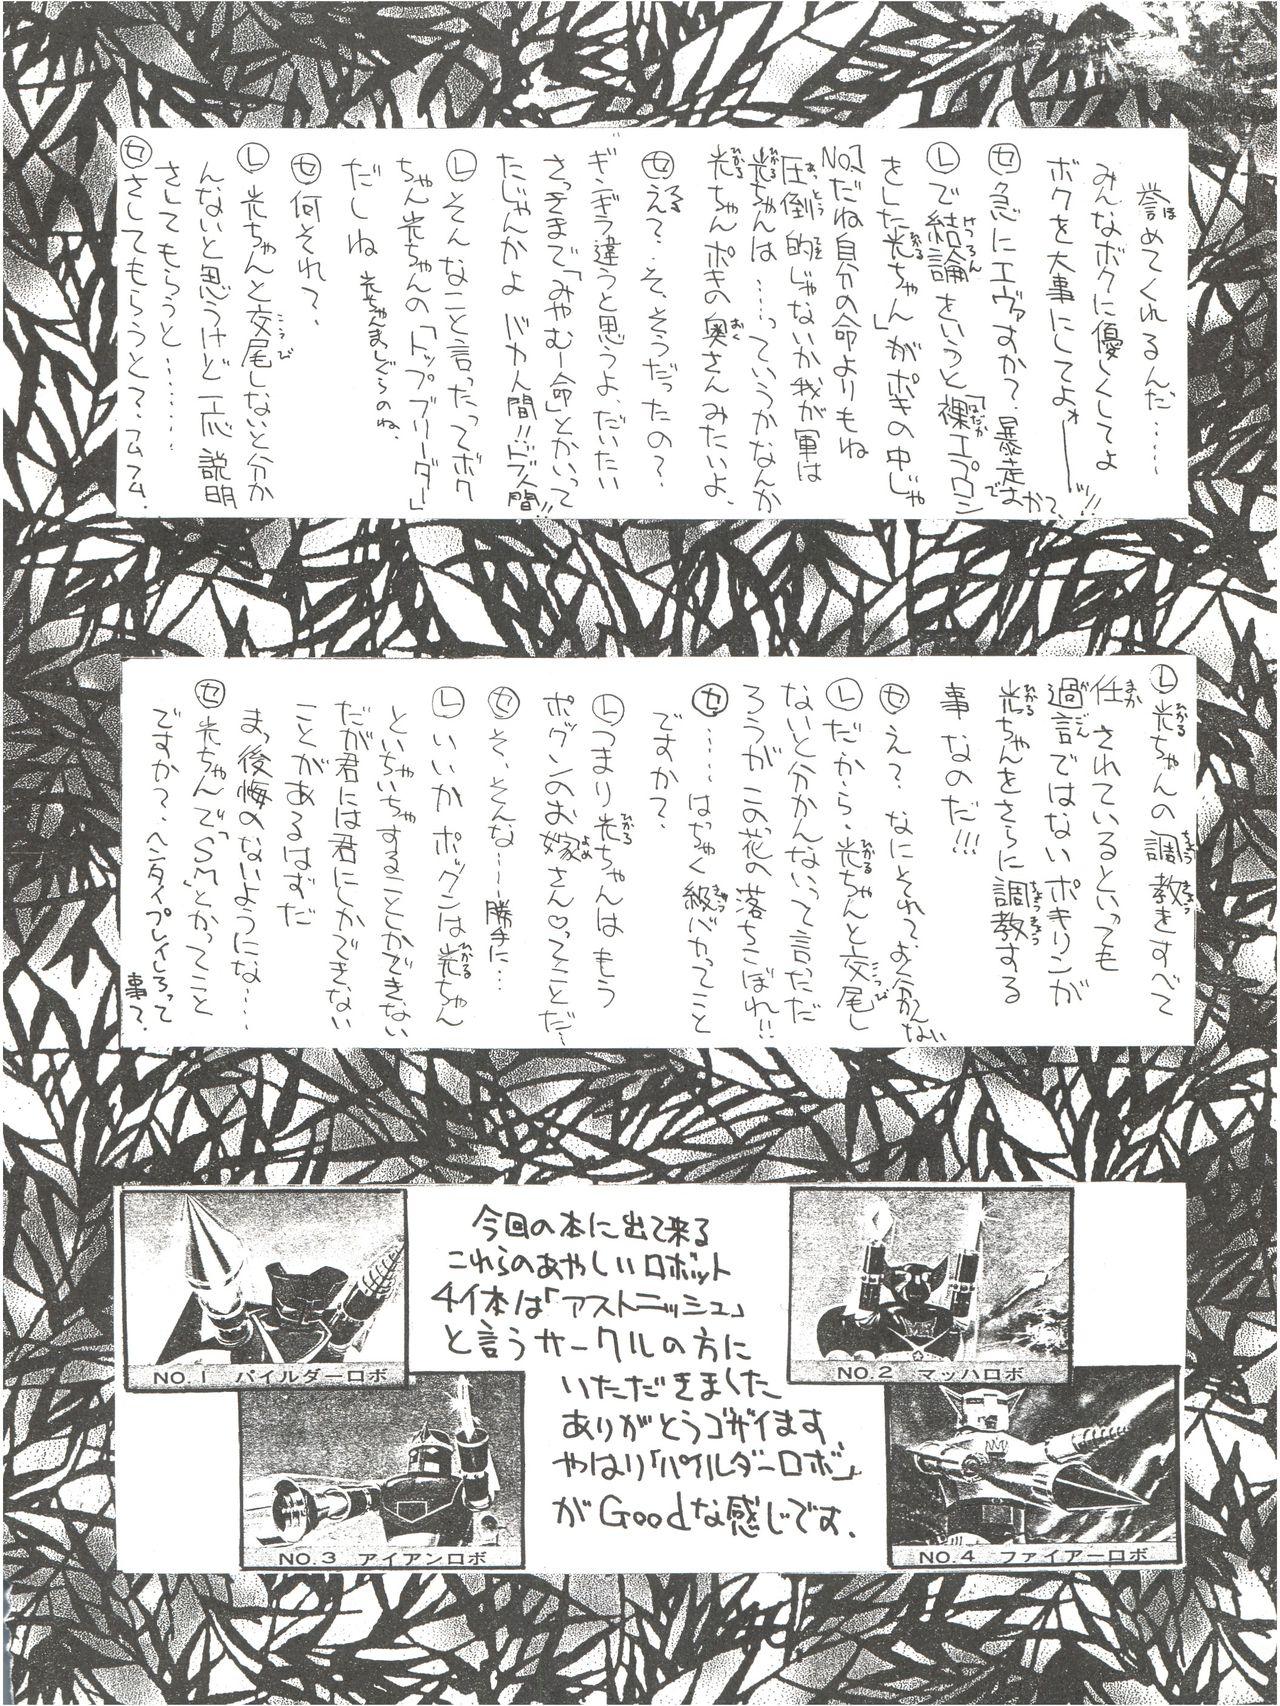 誉めてくれるんだ……
みんなボクに優しくしてよ
ボクを大事にしてよォーッ!!
セ 急にエヴァすか?暴走すか?
レ で結論をいうと「裸エプロン
をした光ちゃん」がポキの中じゃ
NO.1だね自分の命よりもね
圧倒的じゃないか我が軍は
光ちゃんは……っていうかなんか
光ちゃんポキの奥さんみたいよ、
セ え?そ、そうだったの?
ギ・ギ・ギう違うと思うよ、だいたい
さっきまで「みやむー命」とかいって
たじゃんかよ バカ人間!!
レ そんなこと言ったってボク
ちゃん光ちゃんの「トップブリーダー」
だしね
セ 何それ?
レ 光ちゃんと交尾しないと分か
んないと思うけど一応説明
さしてもらうと………
セ さしてもらうと?
レ 光ちゃんの調教をすべて
任されているといっても
過言ではないポキリンが
光ちゃんをさらに調教する
事なのだ!!!
セ え?なにそれ?よく分かんない
レ だから、光ちゃんと交尾し
ないと分かんないって言っただ
ろうが この花の落ちこぼれ!!
セ ……はぢゃく級バカってこと
ですか?
レ つまり光ちゃんはもう
ポックンのお嫁さん♡ってことだ〜
セ そ、そんな〜勝手に…
レ いいかポックンは光ちゃん
といちゃいちゃすることしかできない
だが君には君にしかできない
ことがあるはずだ
まっ後悔のないようにな……
セ 光ちゃんで"SM"とかってこと
ですか?ヘンタイプレイしろって
事?
今回の本に出て来る
これらのあやしいロボット
4体は「アストニッシュ」
と言うサークルの方に
いただきました
ありがとうゴザイます
やはり「パイルダーロボ」
がGoodな感じです.
NO.1 パイルダーロボ
NO.2 マッハロボ
NO.3 アイアンロボ
NO.4 ファイアーロボ